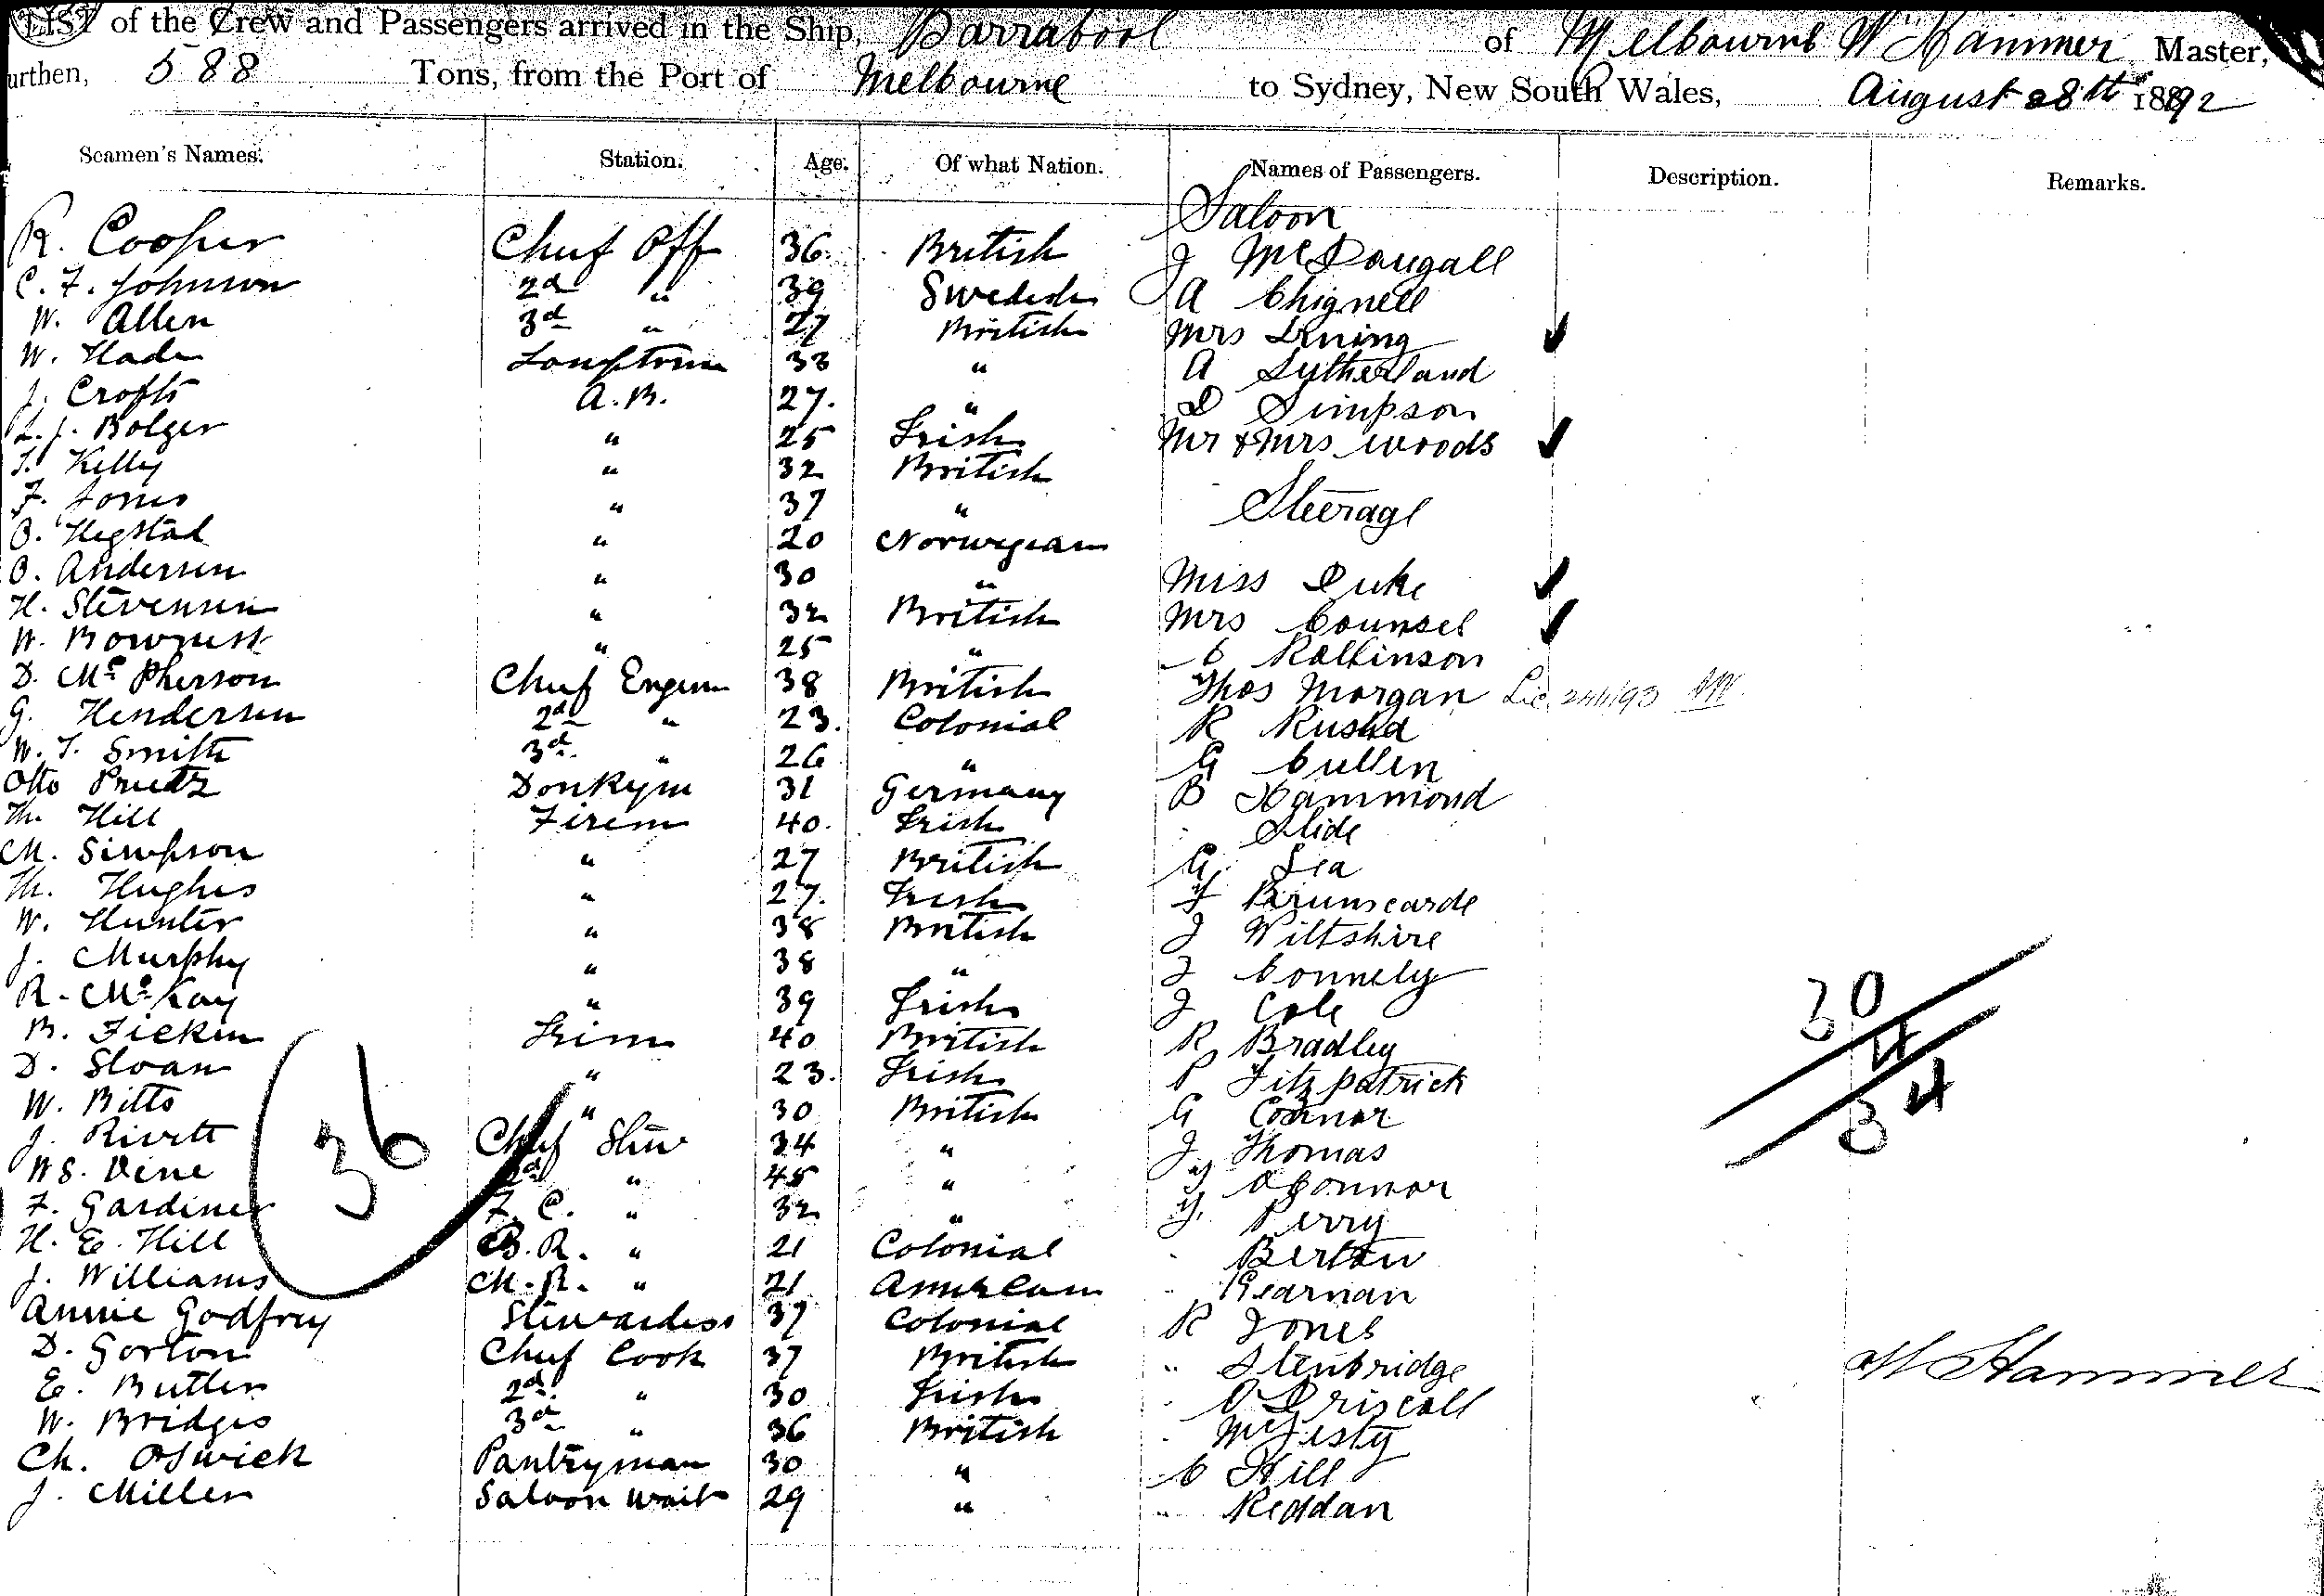 LIST of the Crew and Passengers arrived in the Ship, Barrabool of Melbourne W Hammer Master,
urthen, 588 Tons, from the Port of Melbourne to Sydney, New South Wales, August 28th 1892
Seamen's Names. Station. Age. Of what Nation. Names of Passengers. Description. Remarks.
Saloon
R. Cooper Chief Off 36 British J McDougall
C. F. Johnson 2d " 39 Swedish A Chignell
W. Allen 3d " 27 British Mrs
W. Lamptrim 33 " A Sutherland
J. Crofts A.B. 27. " D Simpson
Bolger " 25 Irish Mr & Mrs Woods
T. Kelly " 32 British
F. Jones " 37 " Steerage
O. Hegstad " 20 Norwegian
O. Andersen " 30 " Miss Duke
H. Stevensen " 32 British Mrs Counsel
W. " 25 " C Rallinson
D. McPherson Chief Engin 38 British Thos Morgan
G. Hendersen 2d " 23. Colonial R
W. T. Smith 3d " 26 " G Cullen
Otto Donkym 31 Germany B Hammond
Th. Hill Firem 40. Irish Slide
M. Simpson " 27 British G. Lea
Th. Hughes " 27. Irish
W. Hunter " 38 British J Wiltshire
J. Murphy " 38 " J Connely
R. McKay " 39 Irish J Cole
B. Ficken Trim 40 British R Bradley
D. Sloan " 23. Irish P Fitzpatrick
W. Bitts " 30 British G Connor
J. Rivett Chief Stew 34 " J Thomas
W S. Vine 2d " 45 " OConnor
F. Gardiner F. C. " 32 " Perry
H. E. Hill B. R. " 21 Colonial Berton
J. Williams M. R. " 21 American
Annie Godfrey Stewardess 37 Colonial R Jones
D. Gorton Chief Cook 37 British " Stenbridge
E. Butler 2d " 30 Irish O Driscoll
W. Bridges 3d " 36 British
Ch. Oswick Pantryman 30 " C Hill
J. Miller Saloon Wait 29 " " Reddan
36
30
4
34
W Hammer